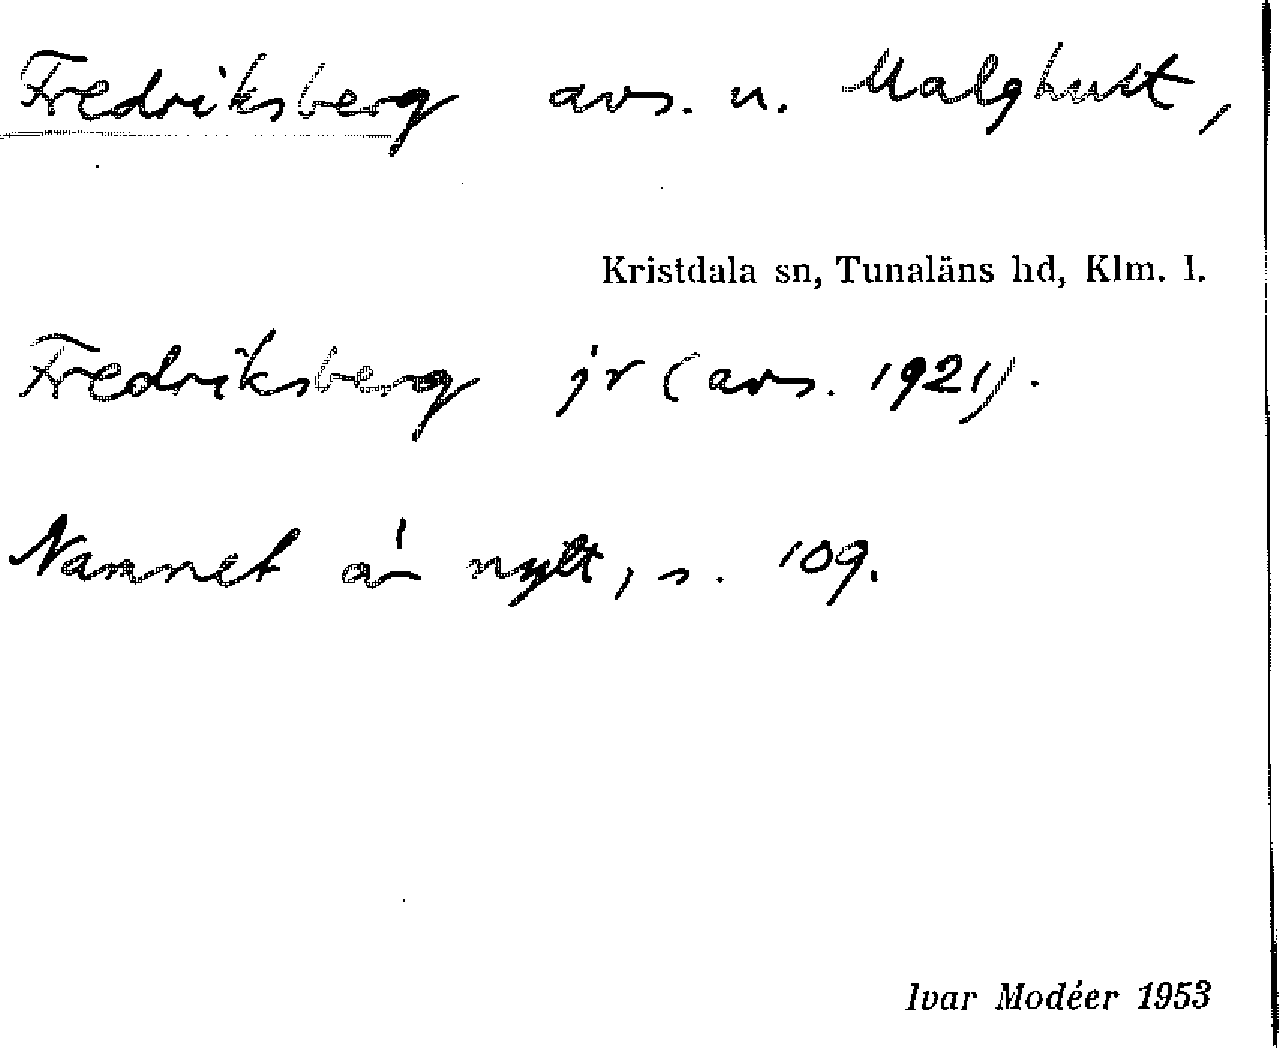 Fredriksberg avs. u. Malghult,
Kristdala sn, Tunaläns hd, Klm. l.
Fredriksberg jr (avs. 1921).
Namnet är nytt, s. 109.
Ivar Modéer 1953